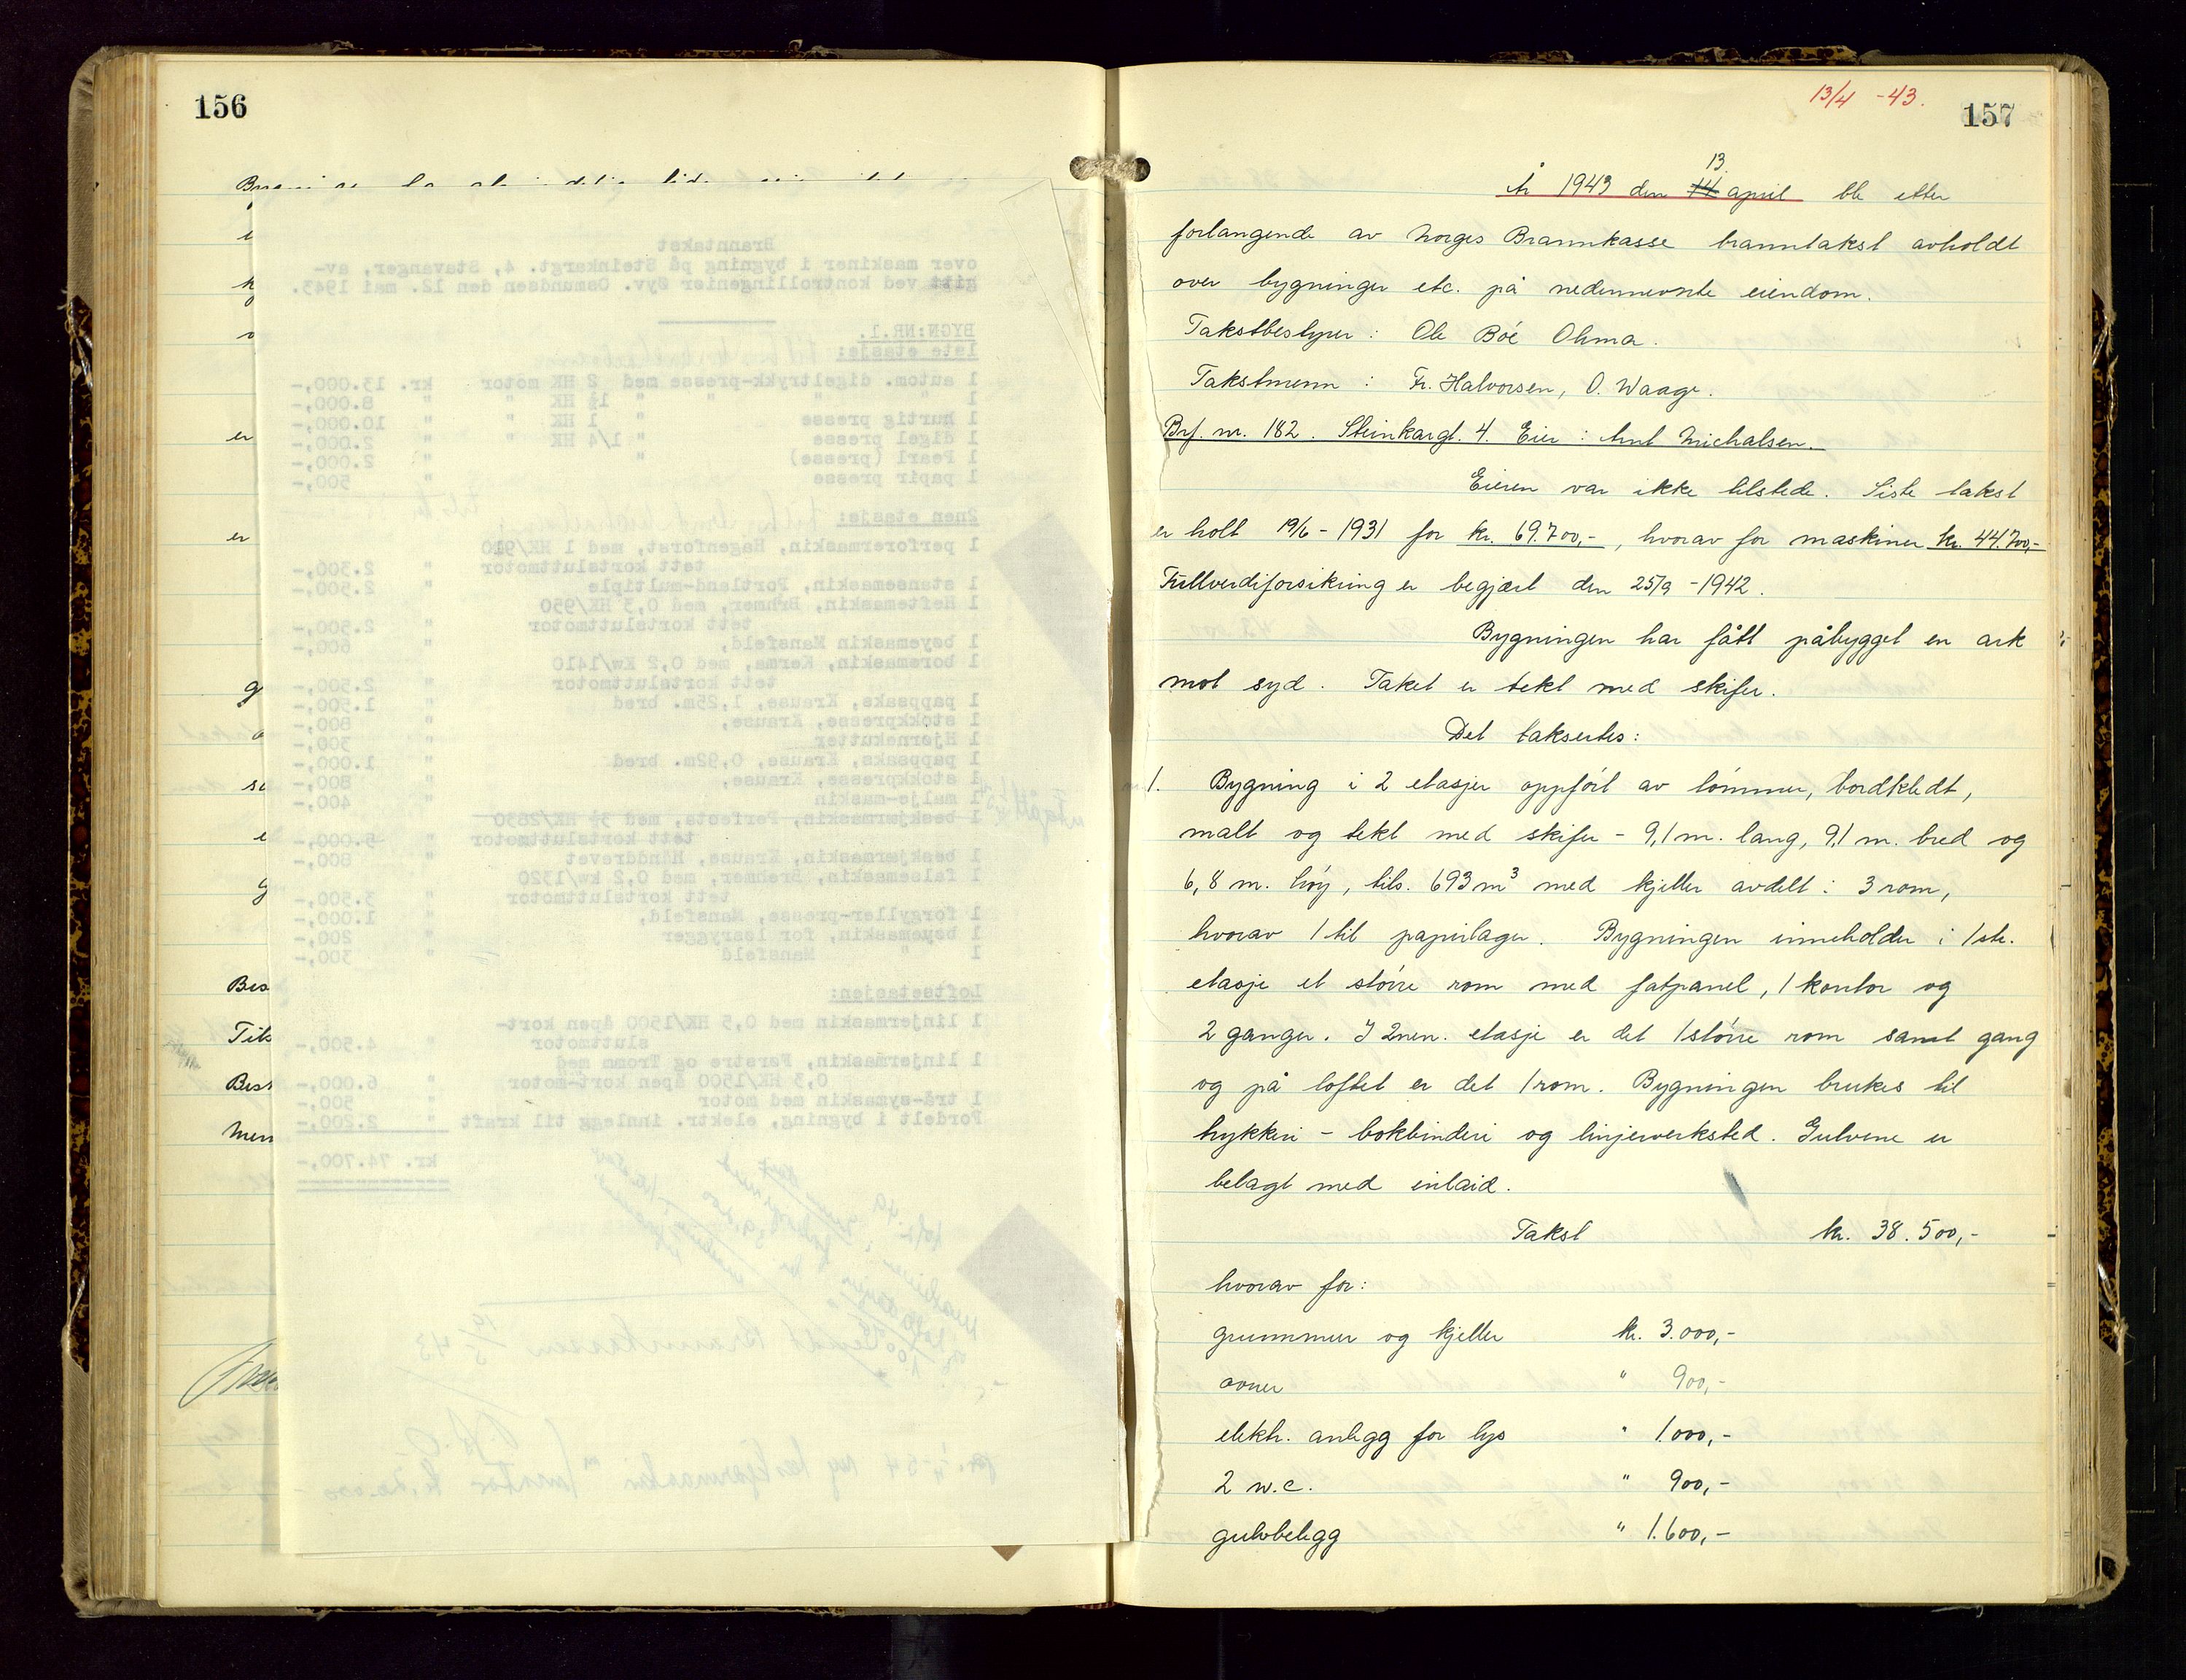 156
er
er
Bes
Tils
Bes
Men
Branntakst
over maskiner i bygning på Steinkargt. 4, Stavanger, av-
gitt ved kontrollingeniør Øyv. Osmundsen den 12. mai 1943.
BYGN:NR.1.
1ste etasje:
1 autom. digeltrykk-presse med 2 HK motor kr. 13.000,-
1 " " " " 1½ HK " " 8.000,-
1 hurtig presse " 1 HK " " 10.000,-
1 digel presse " 1/4 HK " " 2.000,-
1 Pearl (presse) " " 2.000,-
1 papir presse " 500,-
2nen etasje:
1 perforermaskin, Hagenforst, med 1 HK/910
tett kortsluttmotor " 2.300,-
1 stansemaskin, Portland-multiple " 2.500,-
1 Heftemaskin, Brhmer, med 0,3 HK/950
tett kortsluttmotor " 2.500,-
1 bøyemaskin Mansfeld, " 600,-
1 boremaskin, Kerma, med 0,2 Kw/1410
tett kortsluttmotor " 2.500,-
1 pappsaks, Krause, 1,25m. bred " 1.500,-
1 stokkpresse, Krause, " 800,-
1 Hjørnekutter " 300,-
1 pappsaks, Krause, 0,92m. bred " 1.000,-
1 stokkpresse, Krause, " 800,-
1 mulje-maskin " 400,-
1 beskjærmaskin, Perfecta, med 3½ HK/2830
tett kortsluttmotor " 5.000,-
1 beskjærmaskin, Krause, Hånddrevet " 800,-
1 falsemaskin, Brehmer, med 0,2 kw/1320
tett kortsluttmotor " 3.500,-
1 forgyller-presse, Mansfeld, " 1.000,-
1 bøyemaskin, for løsrygger " 200,-
1 " Mansfeld " 300,-
Loftsetasjen:
1 linjermaskin med 0,5 HK/1500 åpen kort-
sluttmotor " 4.500,-
1 linjermaskin, Førstre og Tromm med
0,3 HK/1500 åpen kort-motor " 6.000,-
1 trå-symaskin med motor " 500,-
Fordelt i bygning, elektr. innlegg til kraft " 2.200,-
kr. 74.700,-
13/4 -43.
157
13.
År 1943 den 14 april ble etter
forlangende av Norges Brannkasse branntakst avholdt
over bygninger etc. på nedennevnte eiendom.
Takstbestyrer: Ole Böe Ohma.
Takstmenn: Fr. Halvorsen, O. Waage.
Brf. nr. 182. Steinkargt. 4. Eier: Arnt Michalsen.
Eieren var ikke tilstede. Siste takst
er holt 19/6 - 1931 for kr. 69.700,-, hvorav for maskiner kr. 44.700,-
Fullverdiforsikring er begjært den 25/9 - 1942.
Bygningen har fått påbygget en ark
mot syd. Taket er tekt med skifer.
Det taksertes:
1. Bygning i 2 etasjer oppfört av tömmer, bordkledt,
malt og tekt med skifer - 9,1 m. lang, 9,1 m. bred og
6,8 m. höy, tils. 693 m³ med kjeller avdelt i 3 rom,
hvorav 1 til papirlager. Bygningen inneholder i 1ste.
etasje et större rom med fatpanel, 1 kontor og
2 ganger. I 2nen. etasje er det 1 större rom samt gang
og på loftet er det 1 rom. Bygningen brukes til
trykkeri - bokbinderi og linjerverksted. Gulvene er
belagt med inlaid.
Takst kr. 38.500,-
hvorav for:
grunnmur og kjeller kr. 3.000,-
ovner " 900,-
elektr. anlegg for lys " 1.000,-
2 w.c. " 900,-
gulvbelegg " 1.600,-